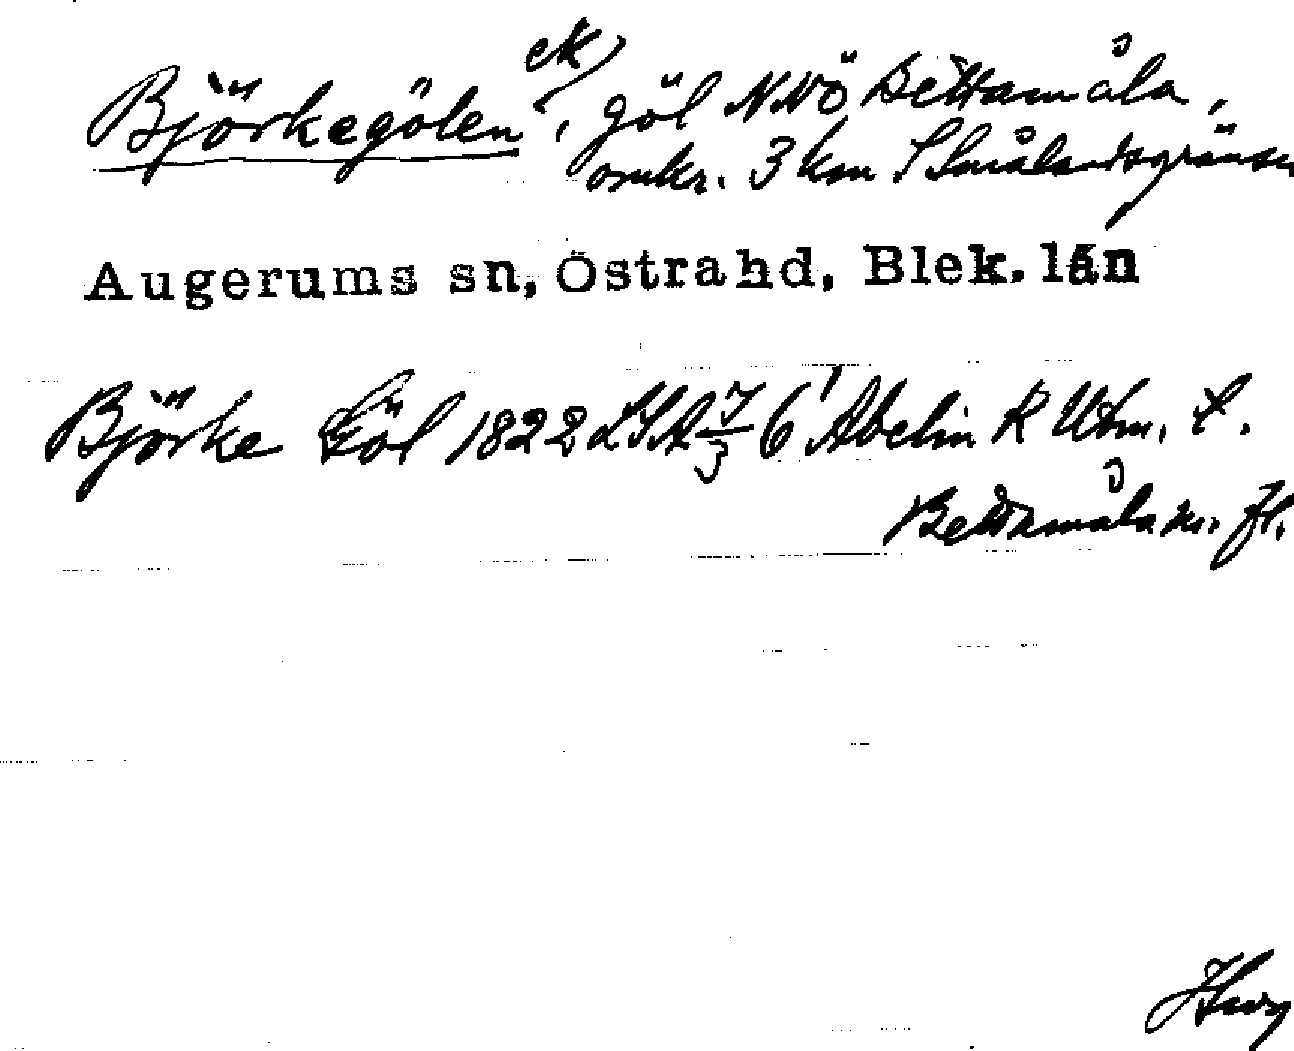 Björkegölen ek), göl NNÖ Bettamåla,
omkr. 3 km S Smålandsgränsen
Augerums sn, Östra hd, Blek. län
Björke Göl 1822 LSA 7/3 6' Abelin R Utm. t.
Bettamåla m. fl.